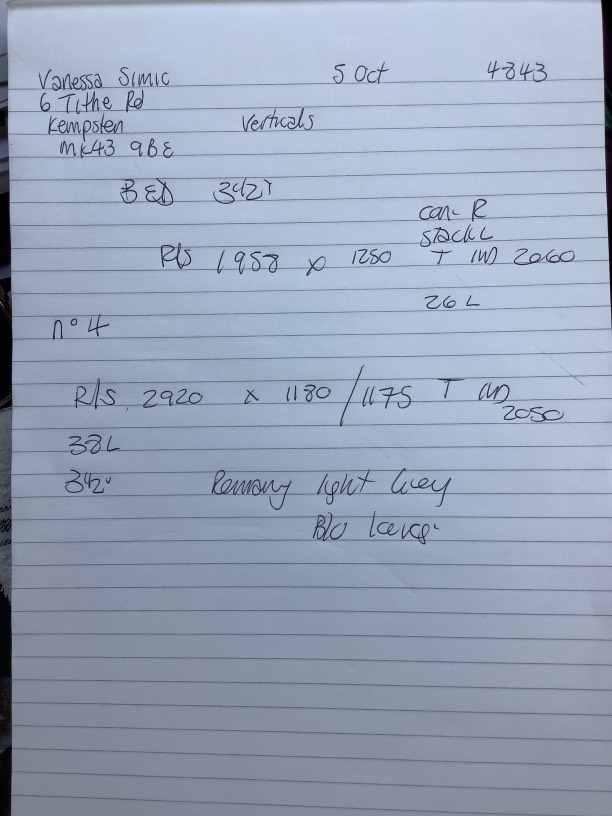 Vanessa Simic 5 Oct 4843
6 Tithe Rd
Kempsten Verticals
MK43 9BE
BED 3421
con- R
STACK L
R/S 1958 x 1250 T IW 2060
26 L
n° 4
R/S 2920 x 1180 / 1175 T IW
2050
38L
342" light Grey
B/O